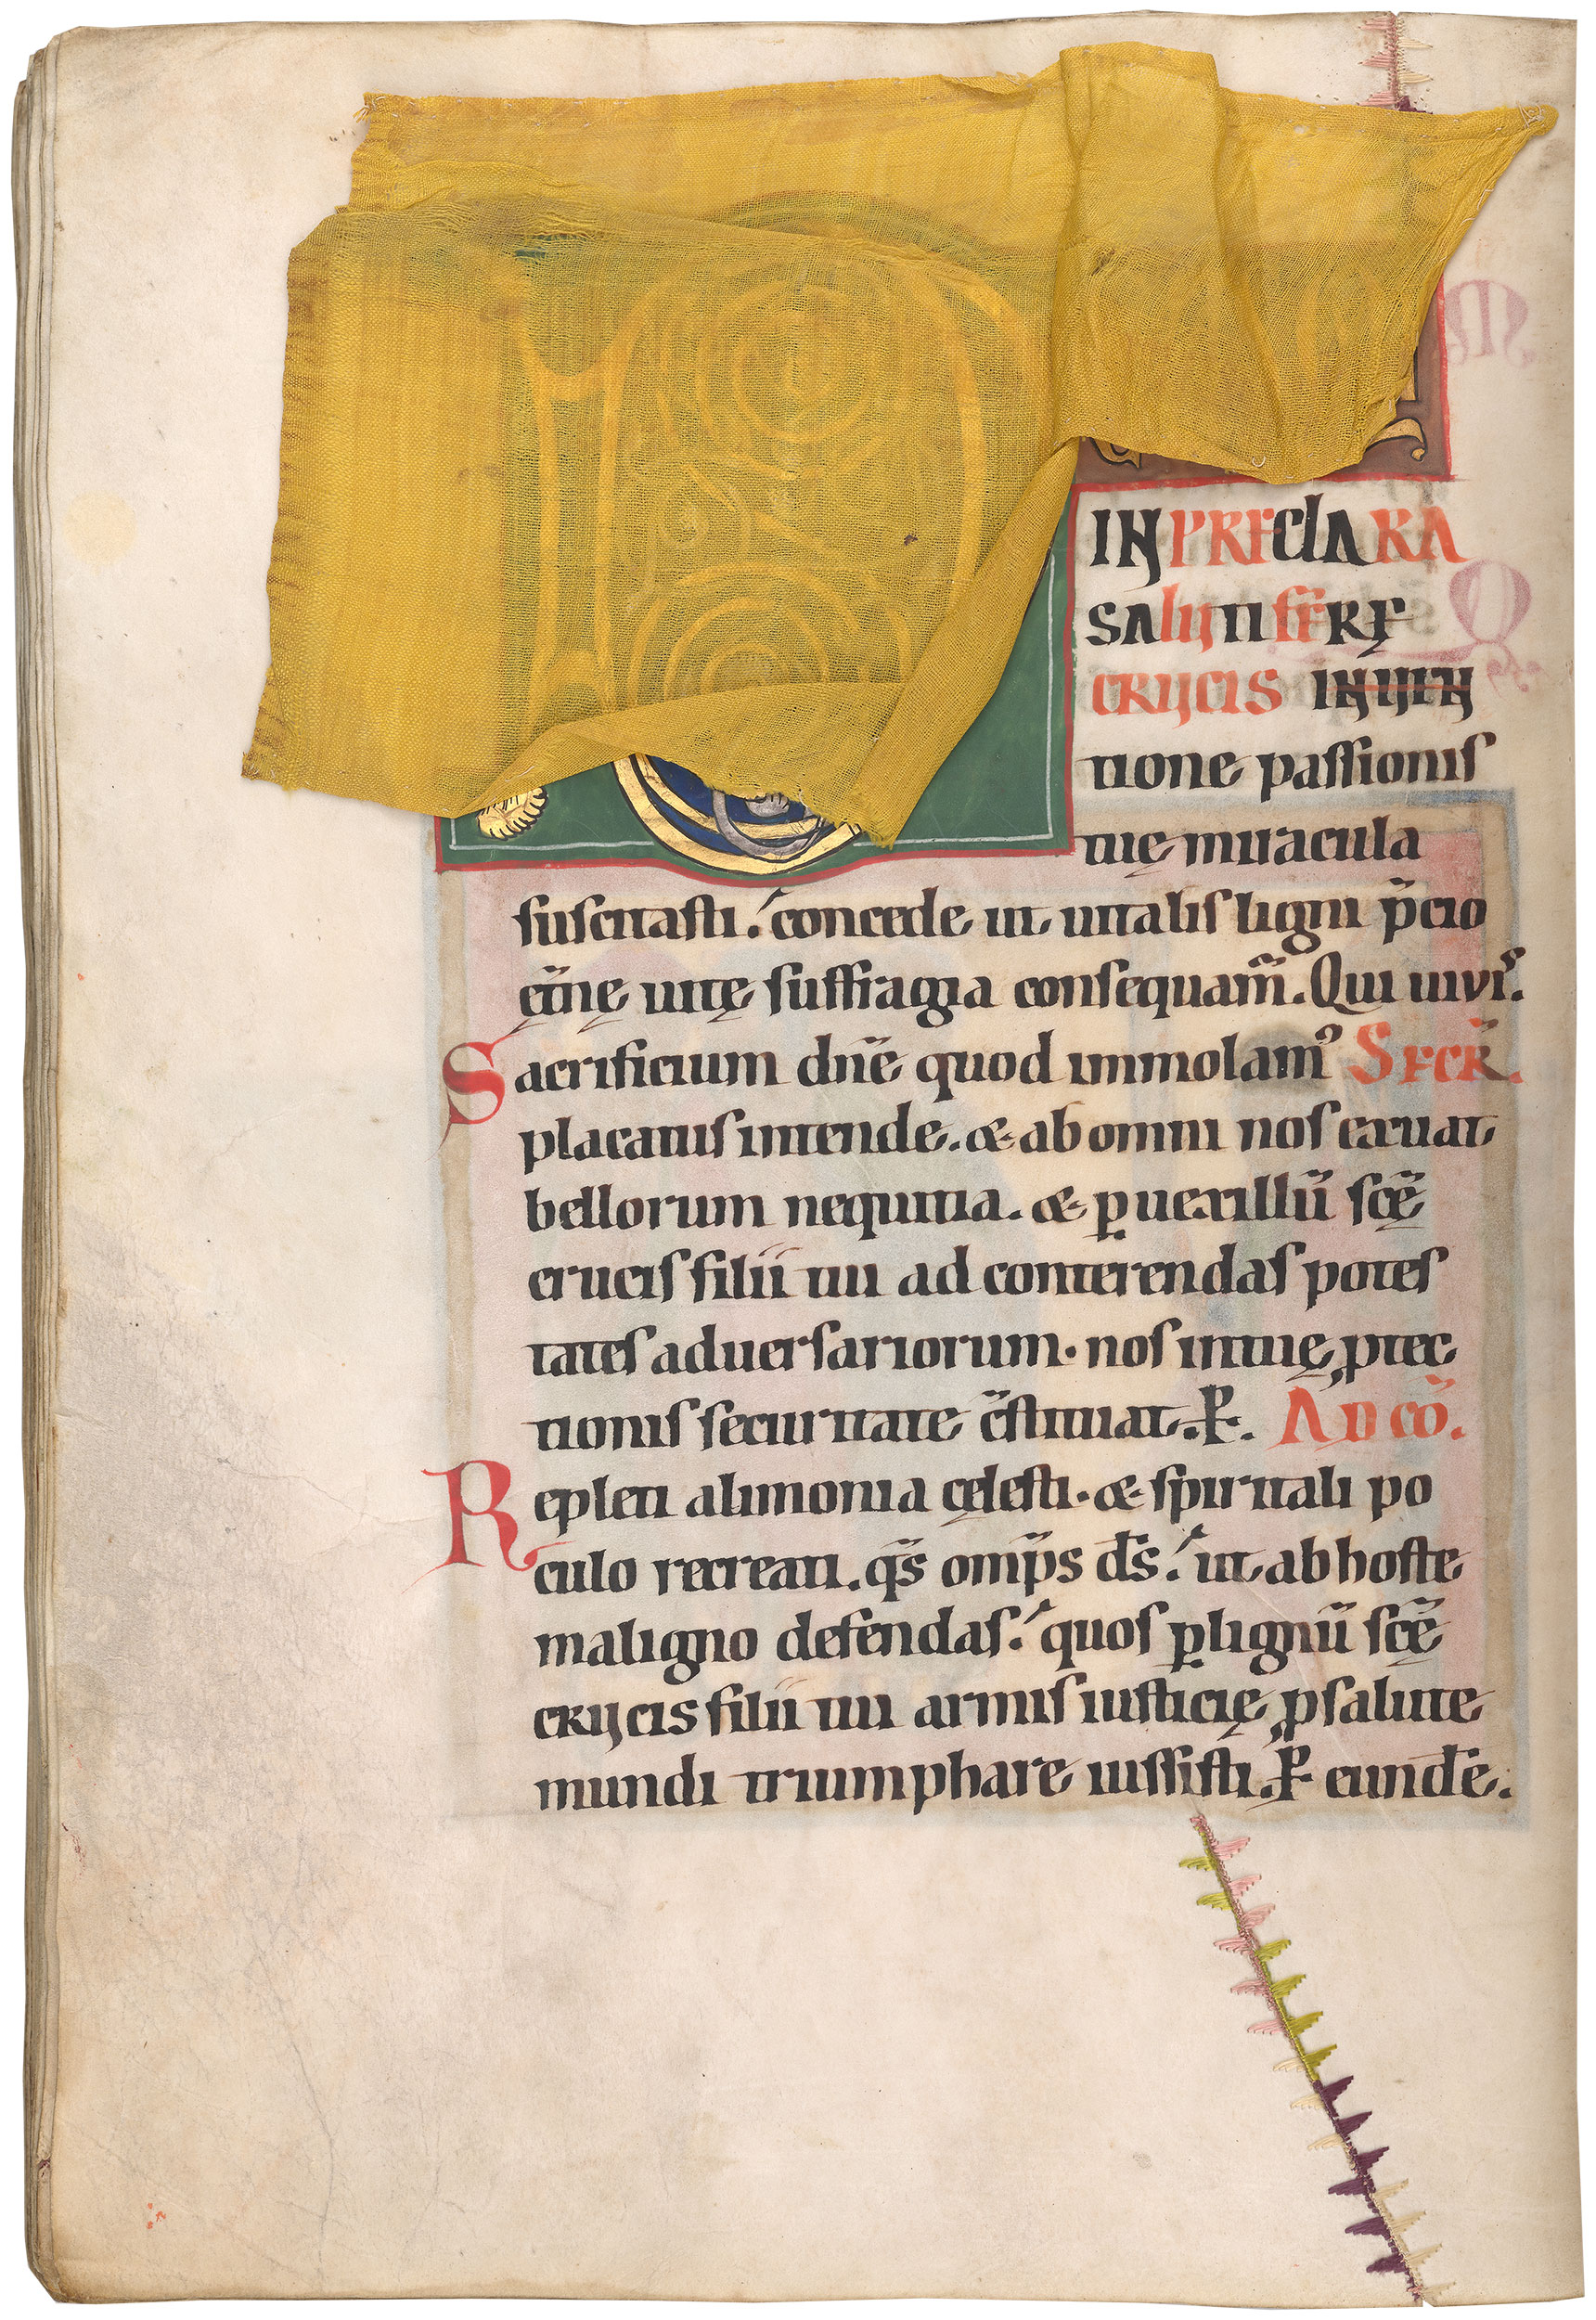 IN PRECLARA
SALUTIFERE
CRUCIS INUEN
tione passionis
tuę miracula
suscitasti. concede ut uitalis ligni p̄cio
et̄nę uitę suffragia consequam̄. Qui uivis.
Sacrificium dn̄e quod immolam᾿ SECR̄.
placatus intende. & ab omni nos exuat
bellorum nequitia. & ꝑ uexillū sc̄ę
crucis filii tui ad conterendas potes
tates aduersariorum. nos in tuę ꝓtec
tionis securitate c̄stituat. P̵. AD CŌ.
Repleti alimonia cęlesti. & spiritali po
culo recreati. qs̄ omp̄s ds̄. ut ab hoste
maligno defendas. quos ꝑ lignū sc̄ę
CRUCIS filii tui armis iusticię ꝓ salute
mundi triumphare iussisti. P̵ eunde̅.